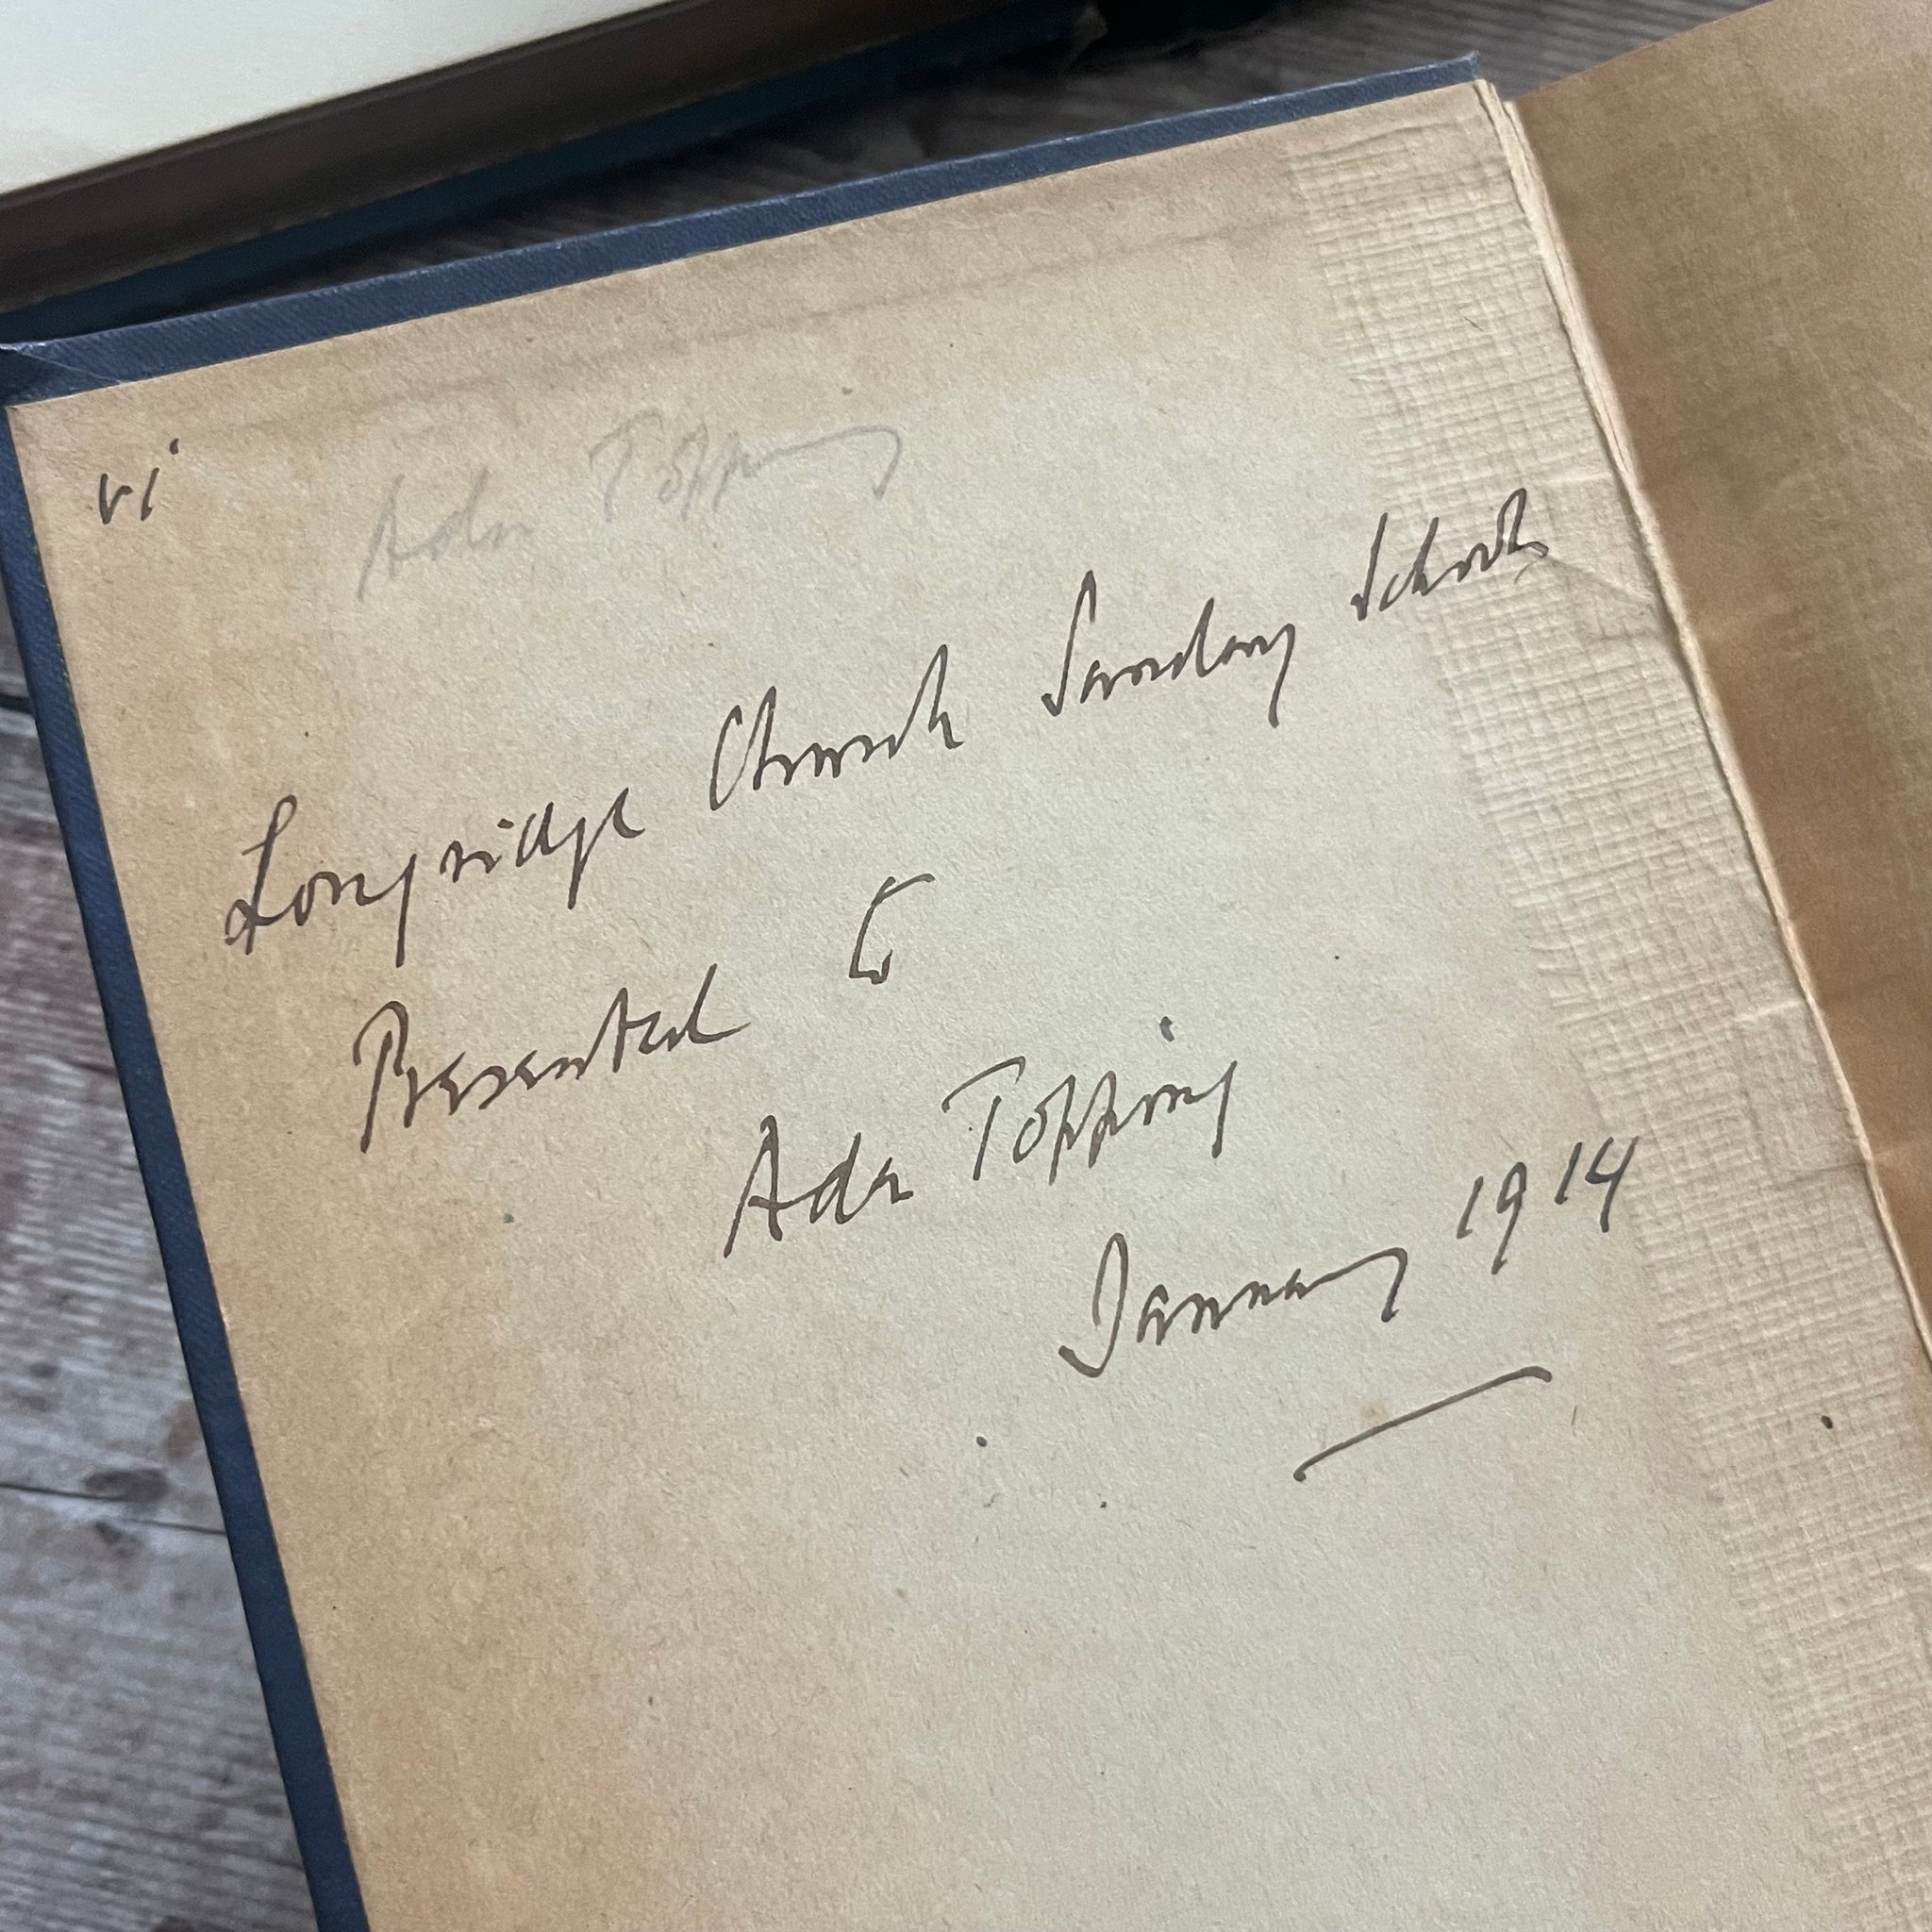 vi
Ada Topping
Longridge Church Sunday School
Presented to
Ada Topping
January 1914